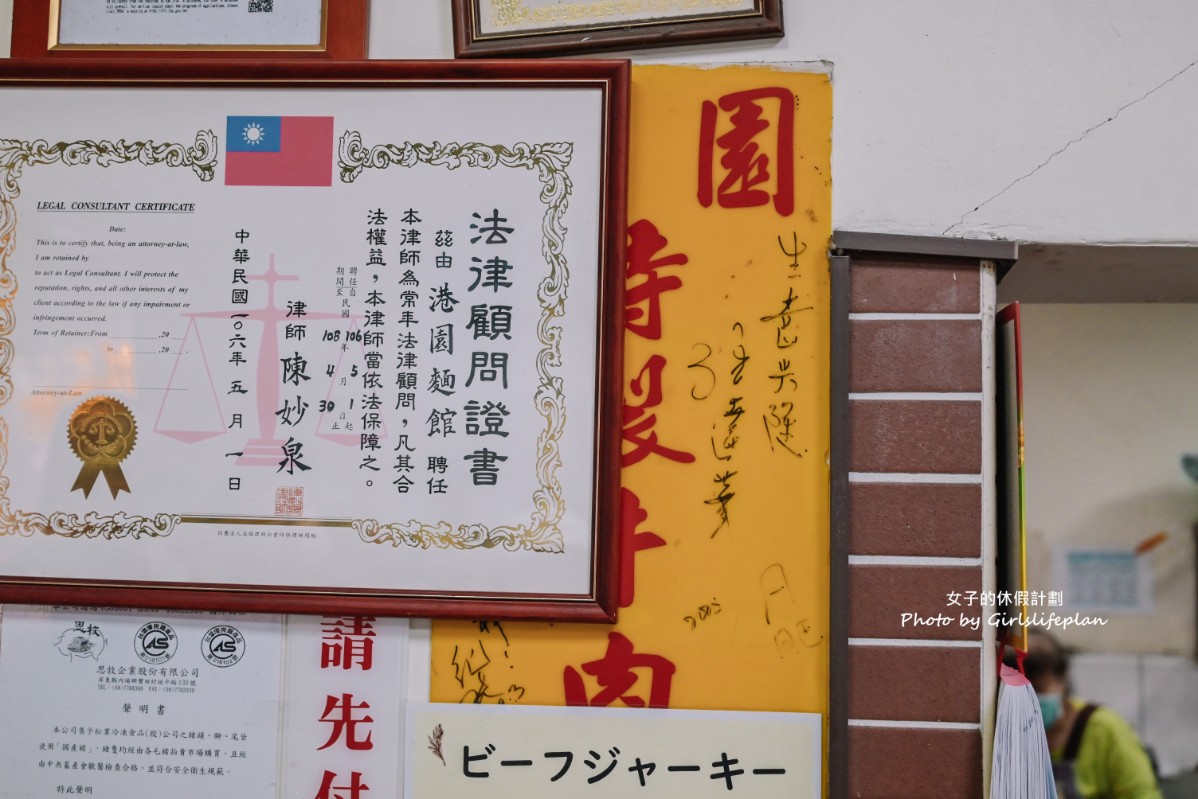 LEGAL CONSULTANT CERTIFICATE
Date:
This is to certify that, being an attorney-at-law,
I am retained by
to act as Legal Consultant. I will protect the
reputation, rights, and all other interests of my
client according to the law if any impairment or
infringement occurred.
Term of Retainer:From ,20
to ,20 .
Attorney-at-Law
法律顧問證書
茲由港園麵館聘任
本律師為常年法律顧問，凡其合
法權益，本律師當依法保障之。
聘任自民國106年5月1日起
期間至108年4月30日止
律師陳妙泉
中華民國一0六年五月一日
園
特製牛肉
生意興隆
2003
思牧
思牧企業股份有限公司
聲明書
使用「國產豬」，豬隻均經由各毛豬拍賣市場購買、且經
由中央畜產會獸醫檢查合格，並符合安全衛生規範。
特此聲明
請先付
ビーフジャーキー
女子的休假計劃
Photo by Girlslifeplan